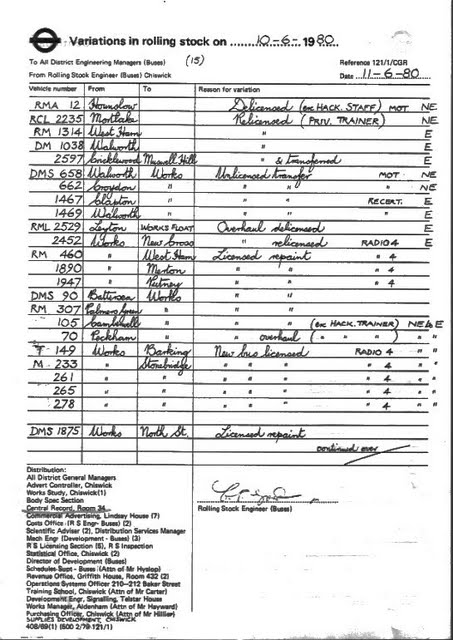 Variations in rolling stock on 10-6-1980
To All District Engineering Managers (Buses) (15) Reference 121/1/CGR
From Rolling Stock Engineer (Buses) Chiswick Date 11-6-80
Vehicle number From To Reason for variation
RMA 12 Hounslow Delicensed (exc HACK. STAFF) MOT NE
RCL 2235 Mortlake Relicensed (PRIV. TRAINER) NE
RM 1314 West Ham " E
DM 1038 Walworth " E
2597 Cricklewood Muswell Hill " & transferred E
DMS 658 Walworth Works Unlicensed transfer MOT NE
662 Croydon " " " " NE
1467 Clapton " " " RECERT. E
1469 Walworth " " " " E
RML 2529 Leyton WORKS FLOAT Overhaul delicensed E
2452 Works New Cross " relicensed RADIO 4 E
RM 460 " West Ham Licensed repaint " 4
1890 " Merton " " " 4
1947 " Putney " " " 4
DMS 90 Battersea Works " "
RM 307 Palmers Green " " "
105 Camberwell " " " (exc HACK. TRAINER) NE & E
70 Peckham " " overhaul ( " " ) " "
T 149 Works Barking New bus licensed RADIO 4 " "
M 233 " Stonebridge " " " " 4 " "
261 " " " " " " 4 " "
265 " " " " " " 4 " "
278 " " " " " " 4 " "
DMS 1875 Works North St. Licensed repaint
continued over
Distribution:
All District General Managers
Advert Controller, Chiswick
Works Study, Chiswick(1)
Body Spec Section
Central Record, Room 34
Commercial Advertising, Lindsay House (7)
Costs Office (R S Engr- Buses) (2)
Scientific Adviser (2), Distribution Services Manager
Mech Engr (Development - Buses) (3)
R S Licensing Section (5), R S Inspection
Statistical Office, Chiswick (2)
Director of Development (Buses)
Schedules Supt - Buses (Attn of Mr Hyslop)
Revenue Office, Griffith House, Room 432 (2)
Operations Systems Officer 210-212 Baker Street
Training School, Chiswick (Attn of Mr Carter)
Development Engr, Signalling, Telstar House
Works Manager, Aldenham (Attn of Mr Hayward)
Purchasing Officer, Chiswick (Attn of Mr Hillier)
SUPPLIES DEVELOPMENT, CHISWICK
408/89(1) (500 2/79-121/1)
Rolling Stock Engineer (Buses)